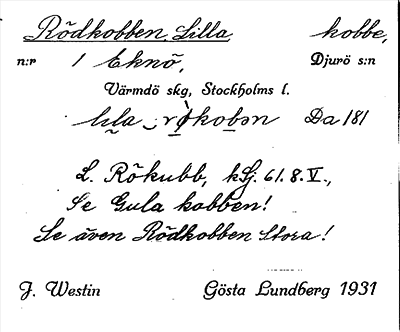 Rödkobben, Lilla kobbe,
n:r 1 Eknö, Djurö s:n
Värmdö skg, Stockholms l.
lɩla rökobən Da 181
L. Rökubb, kSj. 61.8.V.,
Se Gula kobben!
Se även Rödkobben Stora!
J. Westin Gösta Lundberg 1931